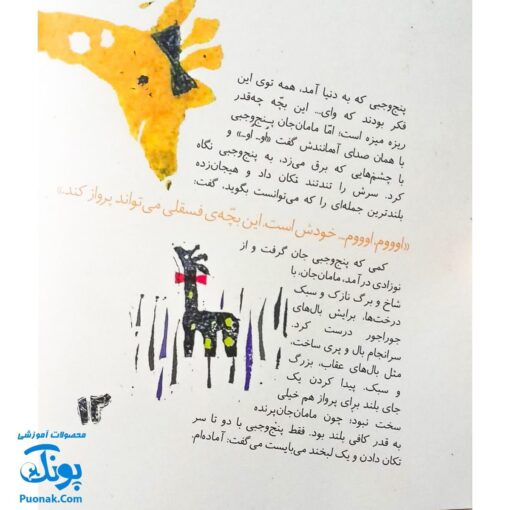 پنج‌وجبی که به دنیا آمد، همه توی این
فکر بودند که وای... این بچّه چه‌قدر
ریزه میزه است؛ امّا مامان‌جان پنج‌وجبی
با همان صدای آهمانندش گفت «اُو... اُو...» و
با چشم‌هایی که برق می‌زد، به پنج‌وجبی نگاه
کرد. سرش را تندتند تکان داد و هیجان‌زده
بلندترین جمله‌ای را که می‌توانست بگوید، گفت:
«اوووم، اوووم... خودش است. این بچّه‌ی فسقلی می‌تواند پرواز کند.»
کمی که پنج‌وجبی جان گرفت و از
نوزادی درآمد، مامان‌جان، با
شاخ و برگ نازک و سبک
درخت‌ها، برایش بال‌های
جوراجور درست کرد.
سرانجام بال و پری ساخت،
مثل بال‌های عقاب، بزرگ
و سبک. پیدا کردن یک
جای بلند برای پرواز هم خیلی
سخت نبود؛ چون مامان‌جان‌پرنده
به قدر کافی بلند بود. فقط پنج‌وجبی با دو تا سر
تکان دادن و یک لبخند می‌بایست می‌گفت: آماده‌ام.
۱۳
محصولات آموزشی
پونک
Puonak.Com